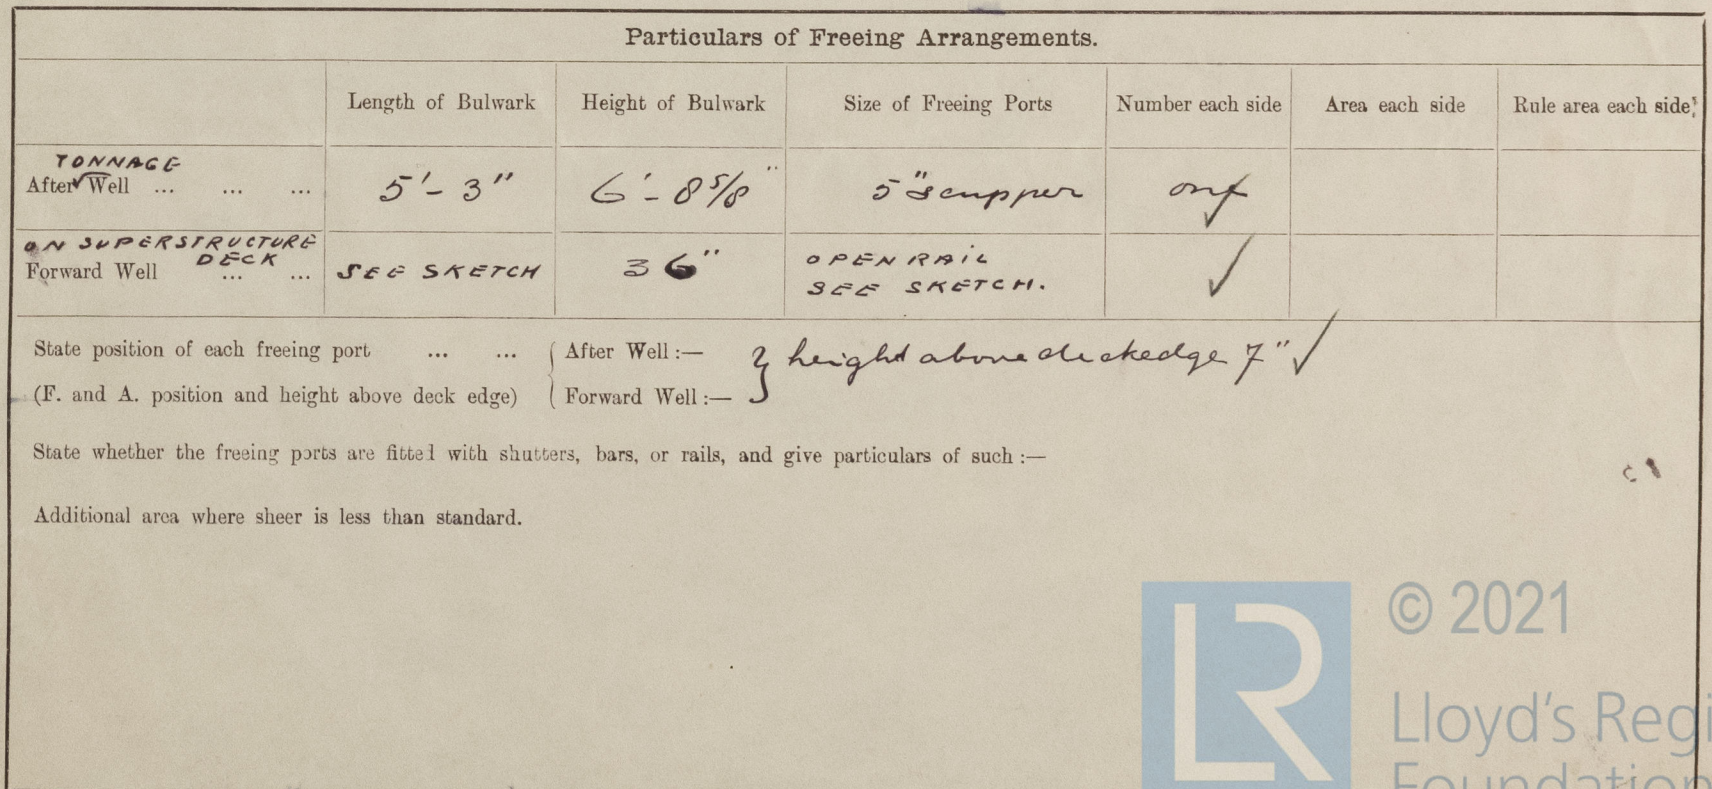 Particulars of Freeing Arrangements.
Length of Bulwark Height of Bulwark Size of Freeing Ports Number each side Area each side Rule area each side
TONNAGE
After Well ... ... ... 5'-3" 6'-8 5/8" 5" scupper one
ON SUPERSTRUCTURE
DECK
Forward Well ... ... SEE SKETCH 36" OPEN RAIL
SEE SKETCH.
State position of each freeing port ... ... After Well :— height above deck edge 7"
(F. and A. position and height above deck edge) Forward Well :—
State whether the freeing ports are fitted with shutters, bars, or rails, and give particulars of such :—
Additional area where sheer is less than standard.
LR
© 2021
Lloyd's Regi
Foundation